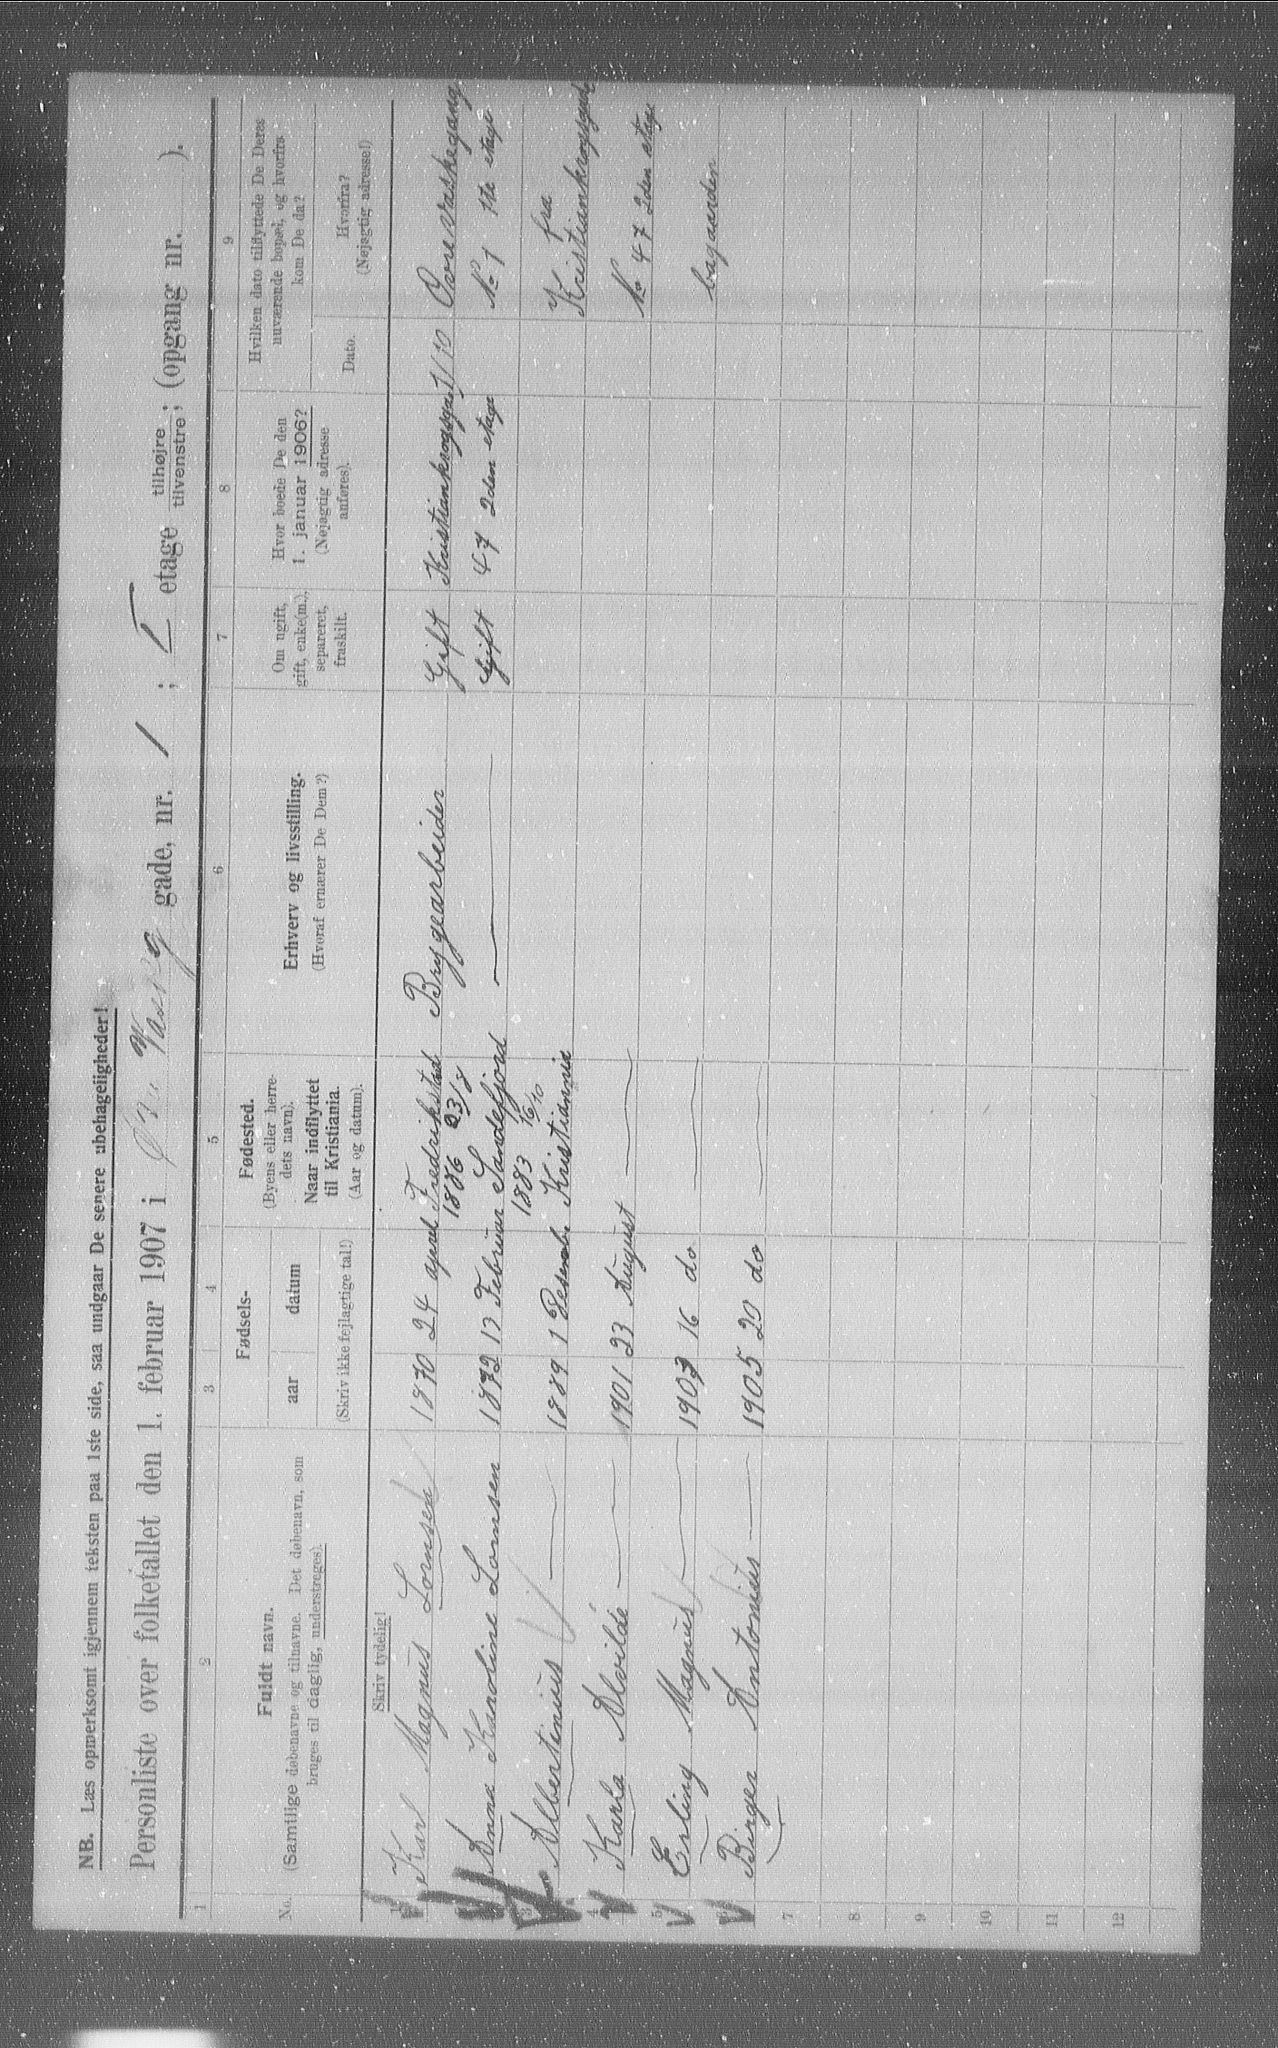 NB. Læs opmerksomt igjennem teksten paa 1ste side, saa undgaar De senere ubehageligheder!
Personliste over folketallet den 1. februar 1907 i gade, nr. 1 ; I etage tilhøjre tilvenstre; (opgang nr. ).
1 2 3 4 5 6 7 8 9
No.
Fuldt navn.
(Samtlige døbenavne og tilnavne. Det døbenavn, som
bruges til daglig, understreges).
Skriv tydelig!
Fødsels-
aar datum
(Skriv ikke fejlagtige tal!)
Fødested.
(Byens eller herre-
dets navn).
Naar indflyttet
til Kristiania.
(Aar og datum).
Erhverv og livsstilling.
(Hvoraf ernærer De Dem?)
Om ugift,
gift, enke(m.),
separeret,
fraskilt.
Hvor boede De den
1. januar 1906?
(Nøjagtig adresse
anføres).
Hvilken dato tilflyttede De Deres
nuværende bopæl, og hvorfra
kom De da?
Dato.
Hvorfra?
(Nøjagtig adresse!)
1 Karl Magnus Lornsen 1870 24 april Fredrikstad Bryggearbeider Gift Kristiankrogsgd 1/10 Øvrevaskegang
1886 23/8 47 2den etage No 1 1ste etage
2 Anna Karoline Lornsen 1872 13 Februar Sandefjord — Gift
1883 16/10 fra
3 Albertinius — 1889 1 Desemb. Kristiannia Kristiankrogsgade
4 Karla Alvilde — 1901 23 August — No 47 2den etage
5 Erling Magnus — 1903 16 do — bagaarden
6 Birger Antonius — 1905 20 do —
7
8
9
10
11
12